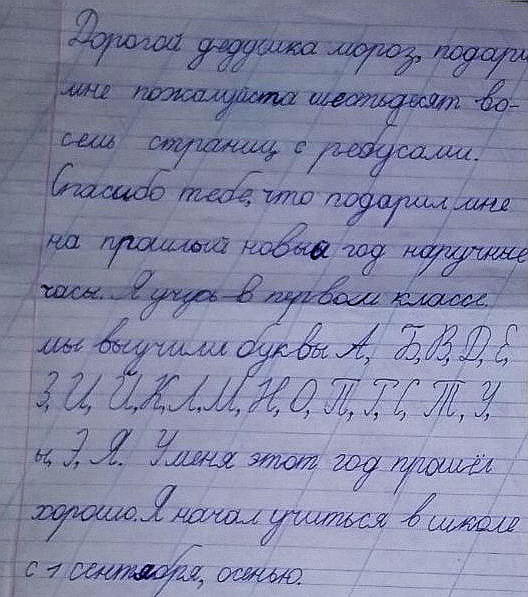 Дорогой дедушка мороз, подари
мне пожалуйста шестьдесят во-
семь страниц с ребусами.
Спасибо тебе, что подарил мне
на прошлый новый год наручные
часы. Я учусь в первом классе.
мы выучили буквы А, Б, В, Д, Е,
З, И, Й, К, Л, М, Н, О, П, Г, С, Т, У,
ы, Э, Я. У меня этот год прошёл
хорошо. Я начал учиться в школе
с 1 сентября, осенью.